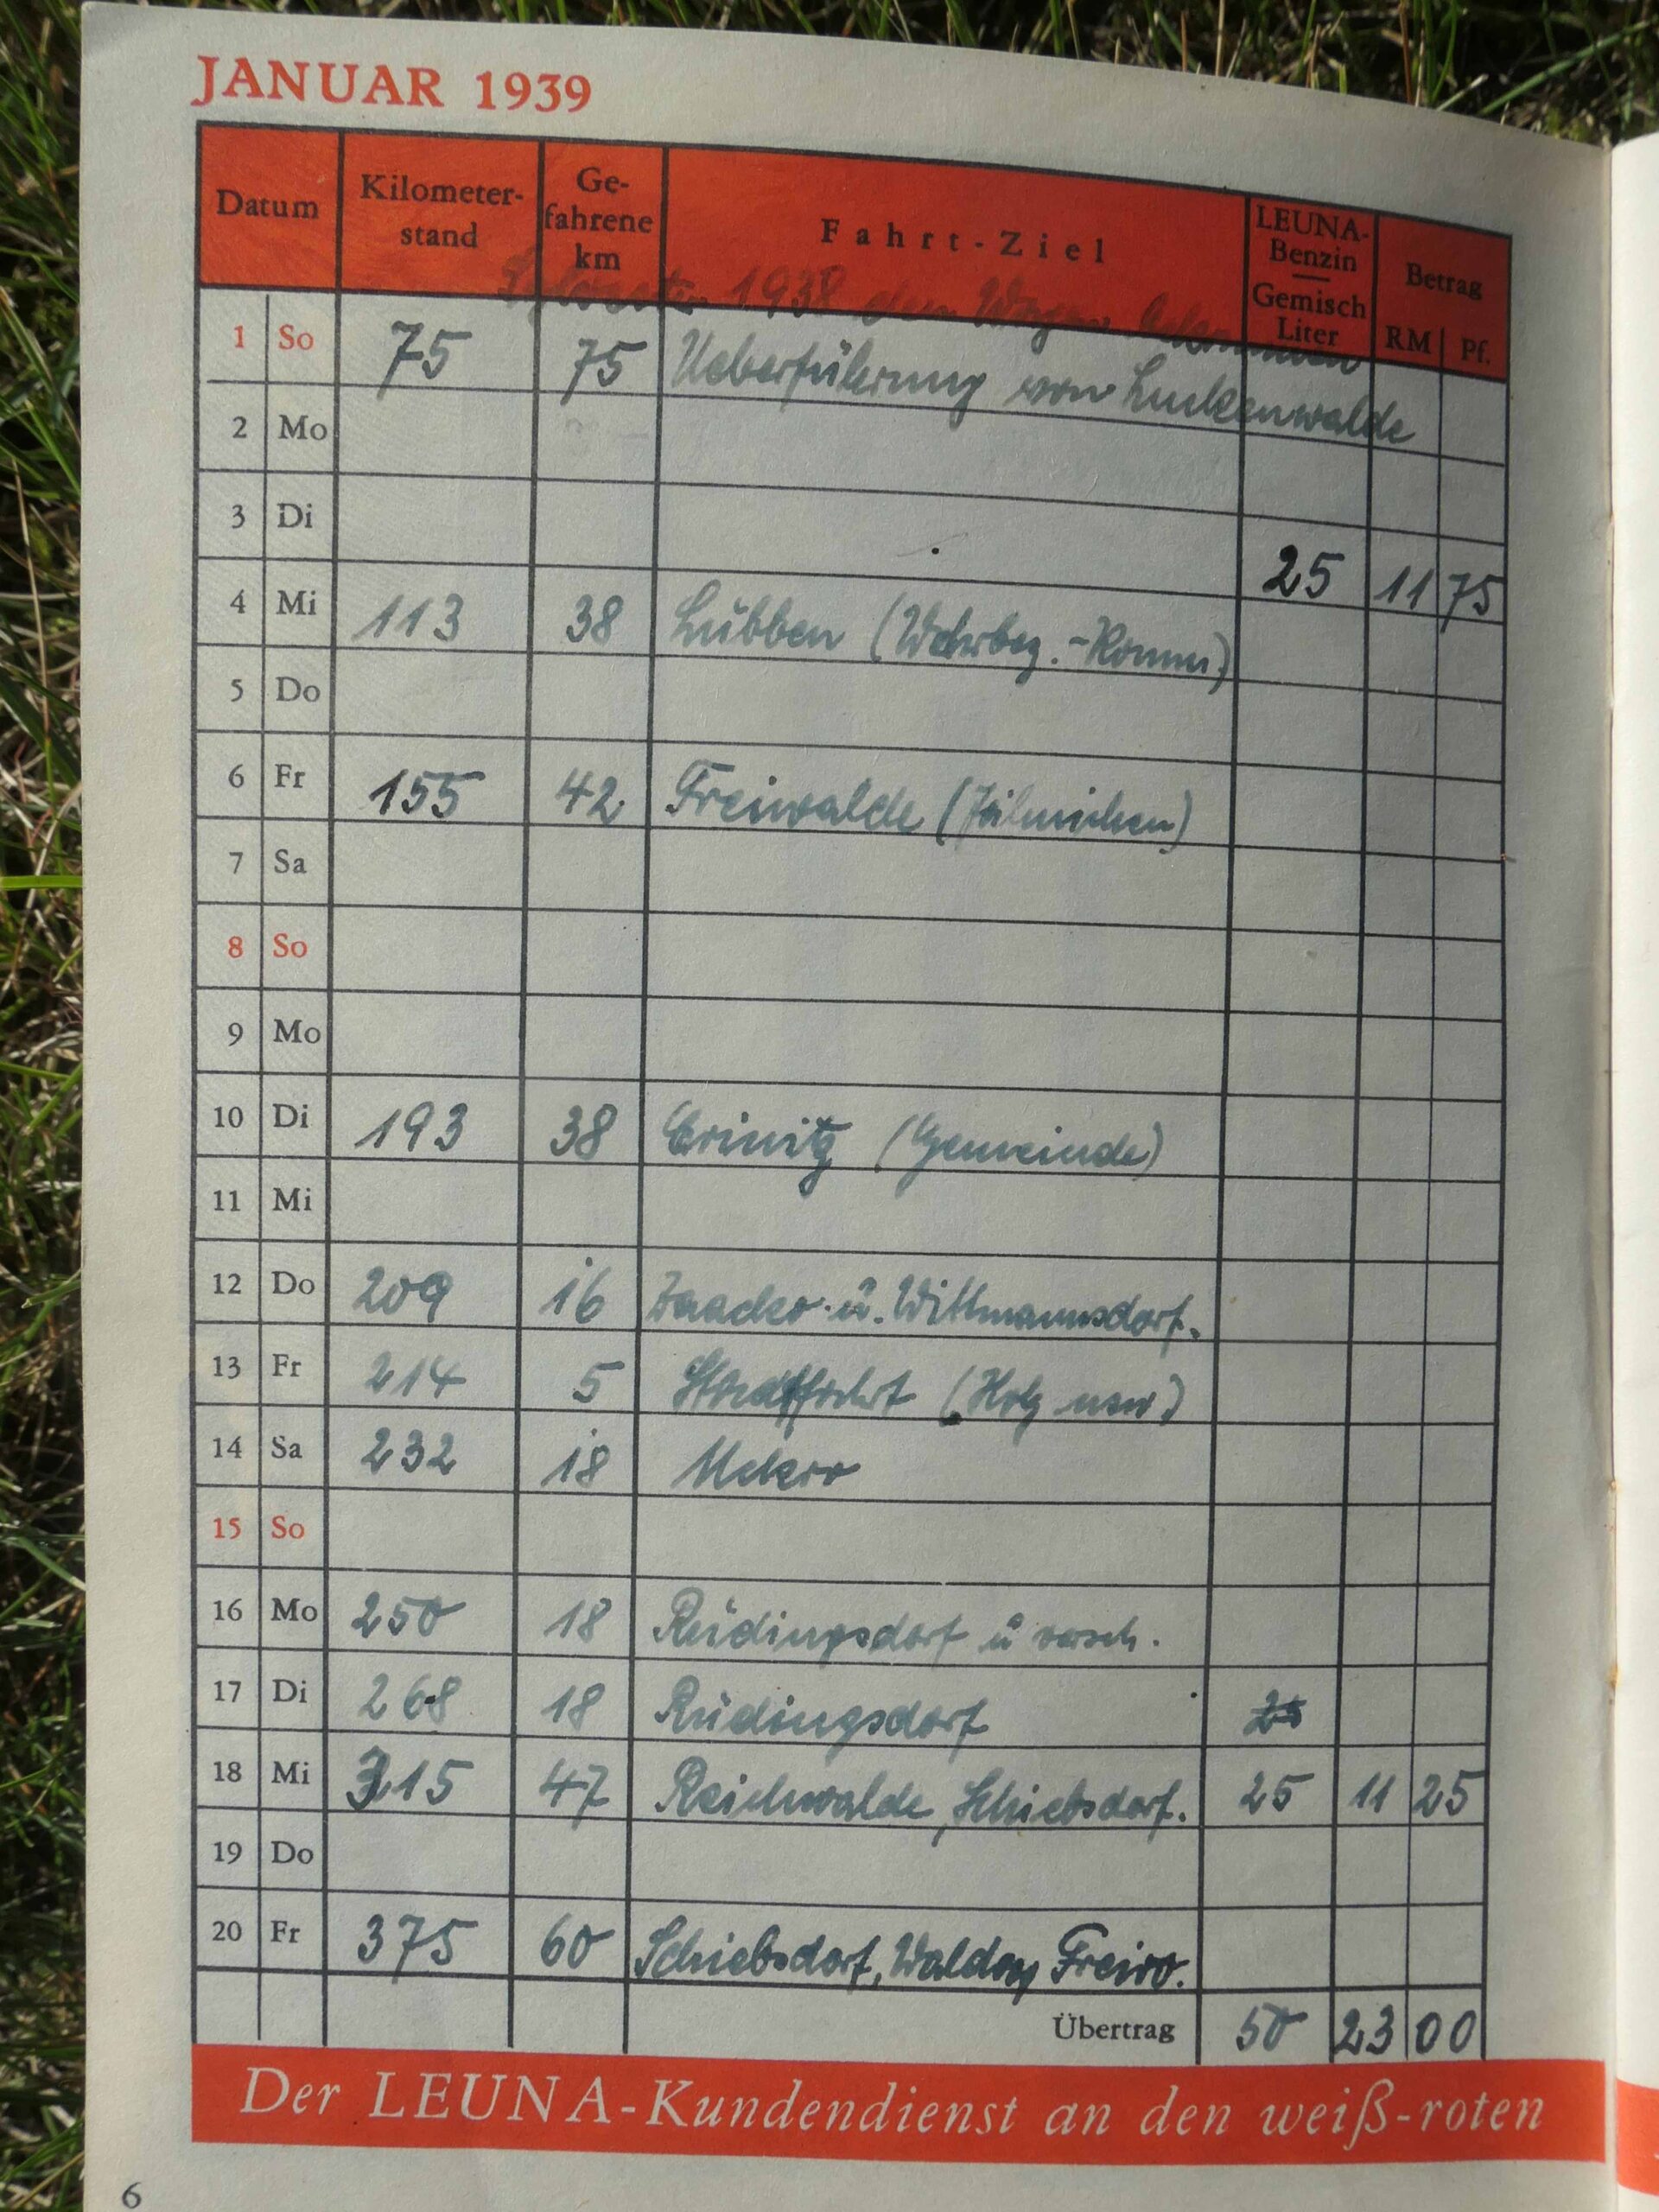 JANUAR 1939
Datum
Kilometer-
stand
Ge-
fahrene
km
Fahrt-Ziel
LEUNA-
Benzin
Gemisch
Liter
Betrag
RM Pf.
Sylvester 1938 den Wagen bekommen
1 So 75 75 Ueberfülerung von Luckenwalde
2 Mo
3 Di 25 11 75
4 Mi 113 38 Lübben (Wehrbez.-Komm)
5 Do
6 Fr 155 42 Freiwalde
7 Sa
8 So
9 Mo
10 Di 193 38 Crinitz (Gemeinde)
11 Mi
12 Do 209 16 Zaacko u. Wittmannsdorf.
13 Fr 214 5 Stadtfahrt (Holz usw)
14 Sa 232 18 Uckro
15 So
16 Mo 250 18 Rüdingsdorf u versch.
17 Di 268 18 Rüdingsdorf 25
18 Mi 315 47 Reichwalde, Schiebsdorf. 25 11 25
19 Do
20 Fr 375 60 Schiebsdorf, Waldow Freiw.
Übertrag 50 23 00
Der LEUNA-Kundendienst an den weiß-roten
6